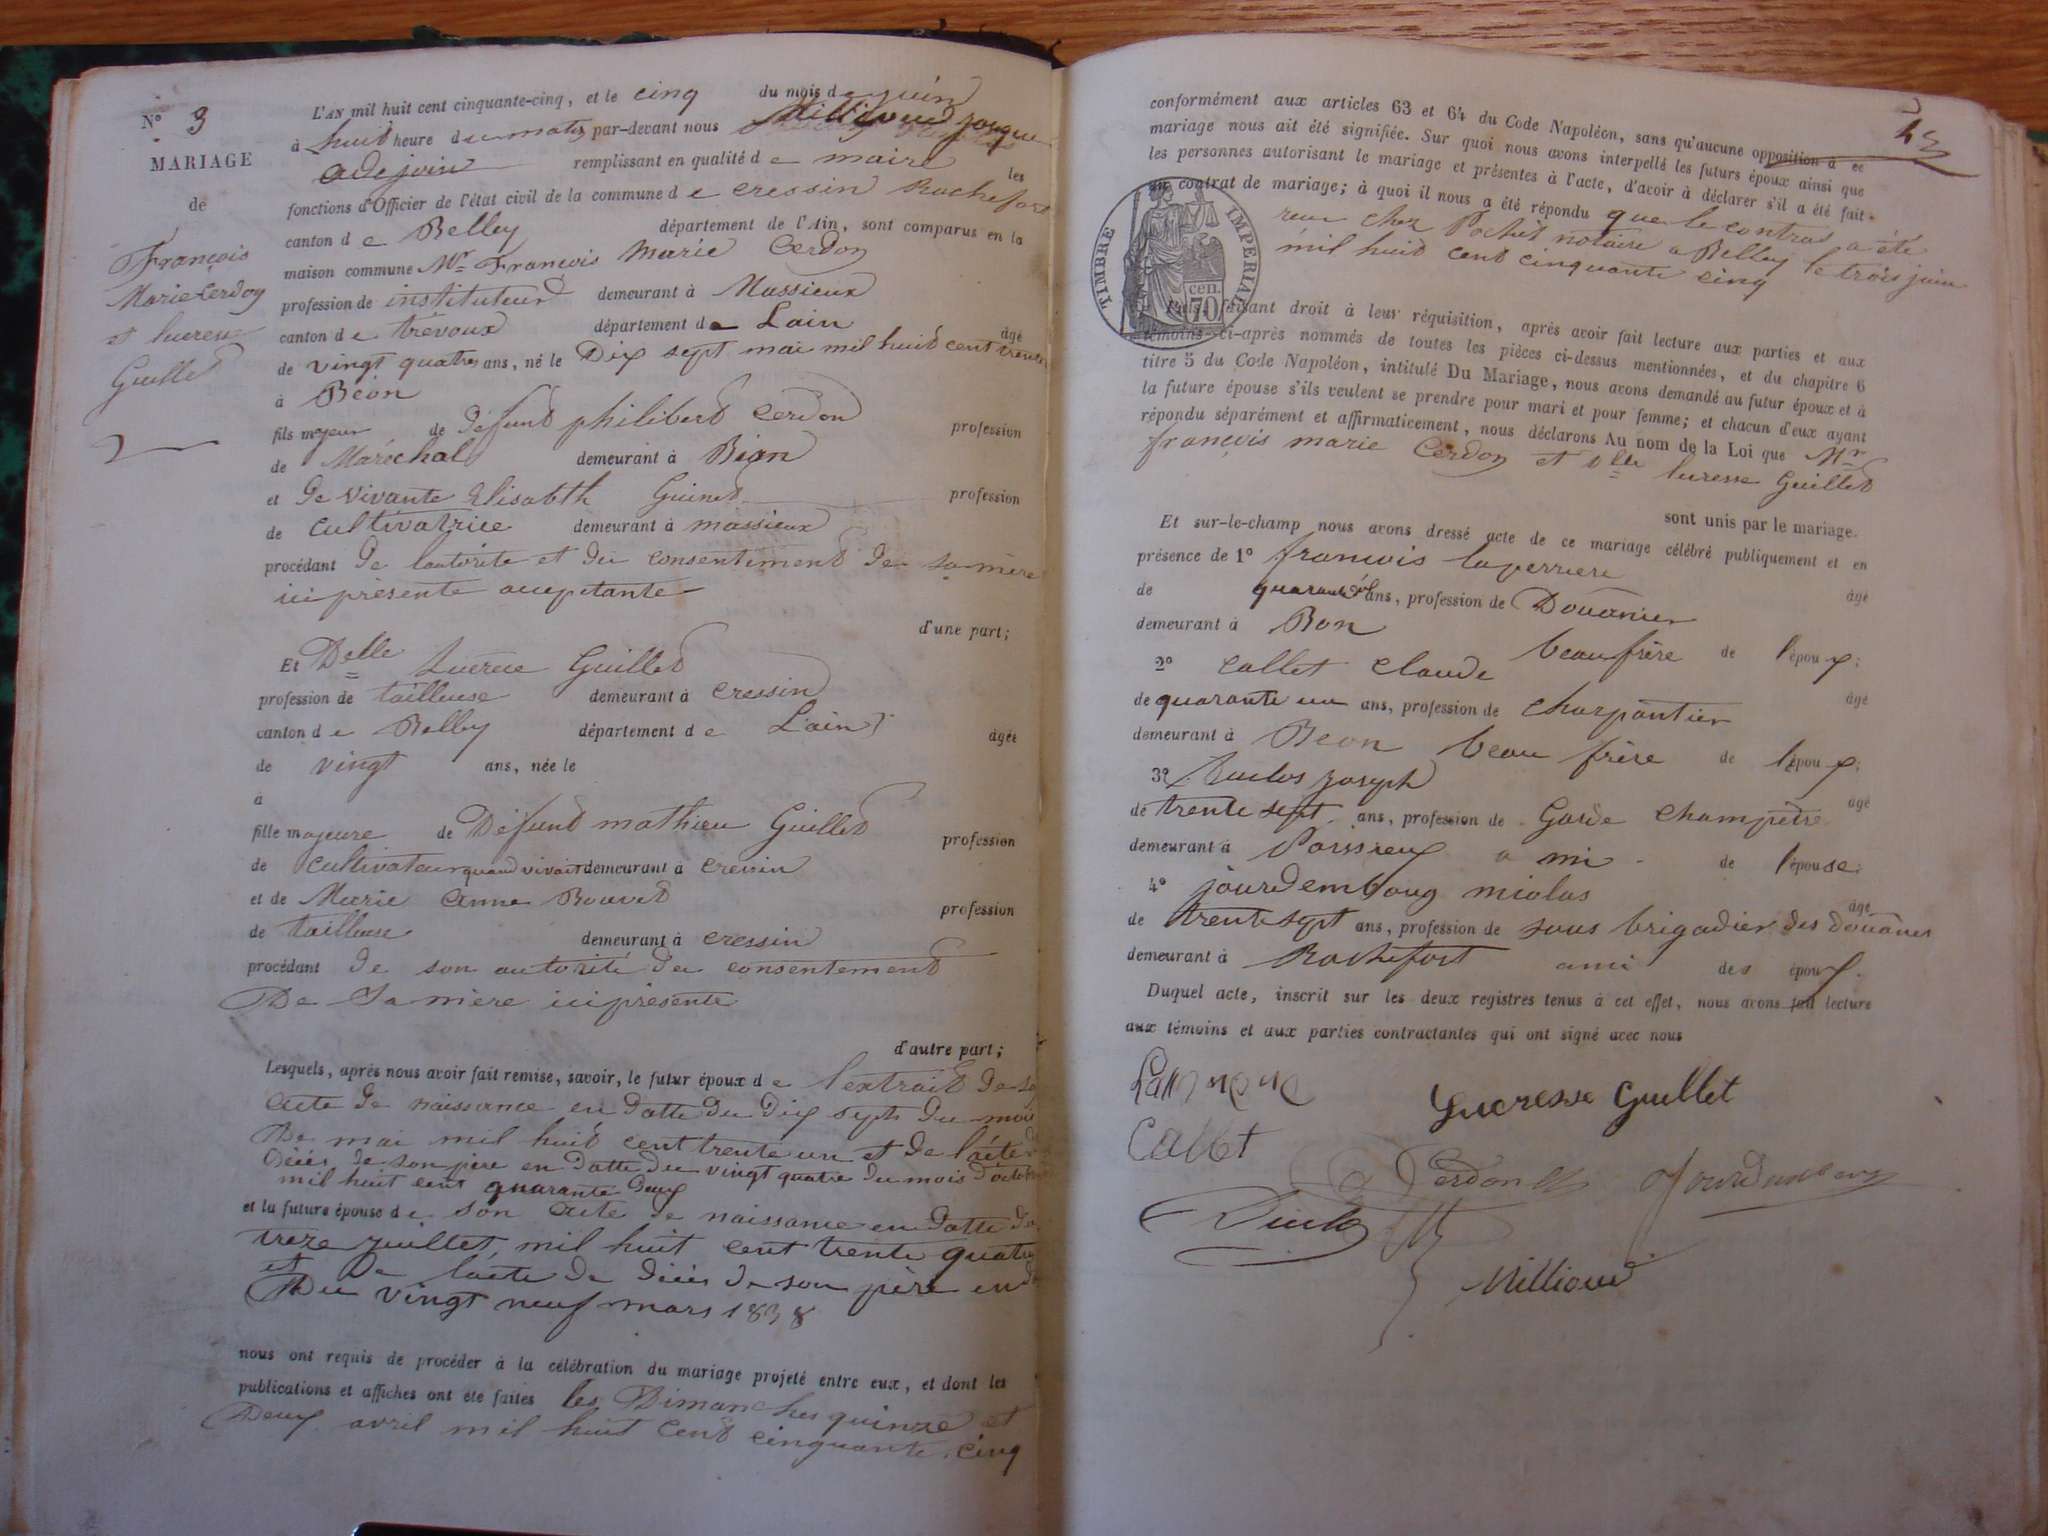 N° 3
MARIAGE
de
François
Marie Cerdon
et lucresse
Guillet
L'AN mil huit cent cinquante-cinq, et le cinq du mois de juin
à huit heure du matin par-devant nous Millioud josque
adejoin remplissant en qualité de maire les
fonctions d'Officier de l'état civil de la commune de cressin Rochefort
canton de Belley département de l'Ain, sont comparus en la
maison commune Mr François Marie Cerdon
profession de instituteur demeurant à Massieux
canton de trévoux département de Lain âgé
de vingt quatre ans, né le Dix sept mai mil huit cent trente
à Béon
fils majeur de défunt philibert Cerdon profession
de Maréchal demeurant à Béon
et de vivante Elisabth Guinet profession
de cultivatrice demeurant à massieux
procédant de lautorite et du consentement de sa mère
ici présente acceptante
d'une part;
Et Delle Lucrece Guillet
profession de tailleuse demeurant à cressin
canton de Belley département de Lain âgée
de vingt ans, née le
à
fille majeure de Défunt mathieu Guillet profession
de cultivateur quand vivait demeurant à cressin
et de Marie anne Bouvet profession
de tailleuse demeurant à cressin
procédant de son autorité du consentement
De Sa mère ici présente
d'autre part;
Lesquels, après nous avoir fait remise, savoir, le futur époux de l'extrait de
acte de naissance en datte du dix sept du mois
De mai mil huit cent trente un et de l'acte
décés de son père en datte du vingt quatre du mois d'octobre
mil huit cent quarante deux
et la future épouse de son acte de naissance en datte du
treze juillet, mil huit cent trente quatre
et De lacte de décés de son père en
Du vingt neuf mars 1838
nous ont requis de procéder à la célébration du mariage projeté entre eux, et dont les
publications et affiches ont été faites les Dimanches quinze et
Deux avril mil huit Cent cinquante cinq
conformément aux articles 63 et 64 du Code Napoléon, sans qu'aucune opposition à ce
mariage nous ait été signifiée. Sur quoi nous avons interpellé les futurs époux ainsi que
les personnes autorisant le mariage et présentes à l'acte, d'avoir à déclarer s'il a été fait
un contrat de mariage; à quoi il nous a été répondu que le contrat a été
recu chez Pochet notaire a Belley le trois juin
mil huit cent cinquante cinq
TIMBRE IMPERIAL
70 cen.
Puis, faisant droit à leur réquisition, après avoir fait lecture aux parties et aux
témoins ci-après nommés de toutes les pièces ci-dessus mentionnées, et du chapitre 6
titre 5 du Code Napoléon, intitulé Du Mariage, nous avons demandé au futur époux et à
la future épouse s'ils veulent se prendre pour mari et pour femme; et chacun d'eux ayant
répondu séparément et affirmativement, nous déclarons Au nom de la Loi que Mr
françois marie Cerdon et dlle lucresse Guillet
sont unis par le mariage.
Et sur-le-champ nous avons dressé acte de ce mariage célébré publiquement et en
présence de 1° francois laperriere âgé
de quarante ans, profession de Douanier
demeurant à Bon beaufrère de l'époux;
2° callet claude âgé
de quarante un ans, profession de charpantier
demeurant à Beon beau frère de l'époux;
3° Duclos joseph âgé
de trente sept ans, profession de Garde champètre
demeurant à Parssieux ami de l'épouse.
4° jourdemboug miolas âgé
de trente sept ans, profession de sous brigadier des Douanes
demeurant à Rochefort ami des époux.
Duquel acte, inscrit sur les deux registres tenus à cet effet, nous avons fait lecture
aux témoins et aux parties contractantes qui ont signé avec nous
Lucresse Guillet
Callet
Cerdon
Millioud